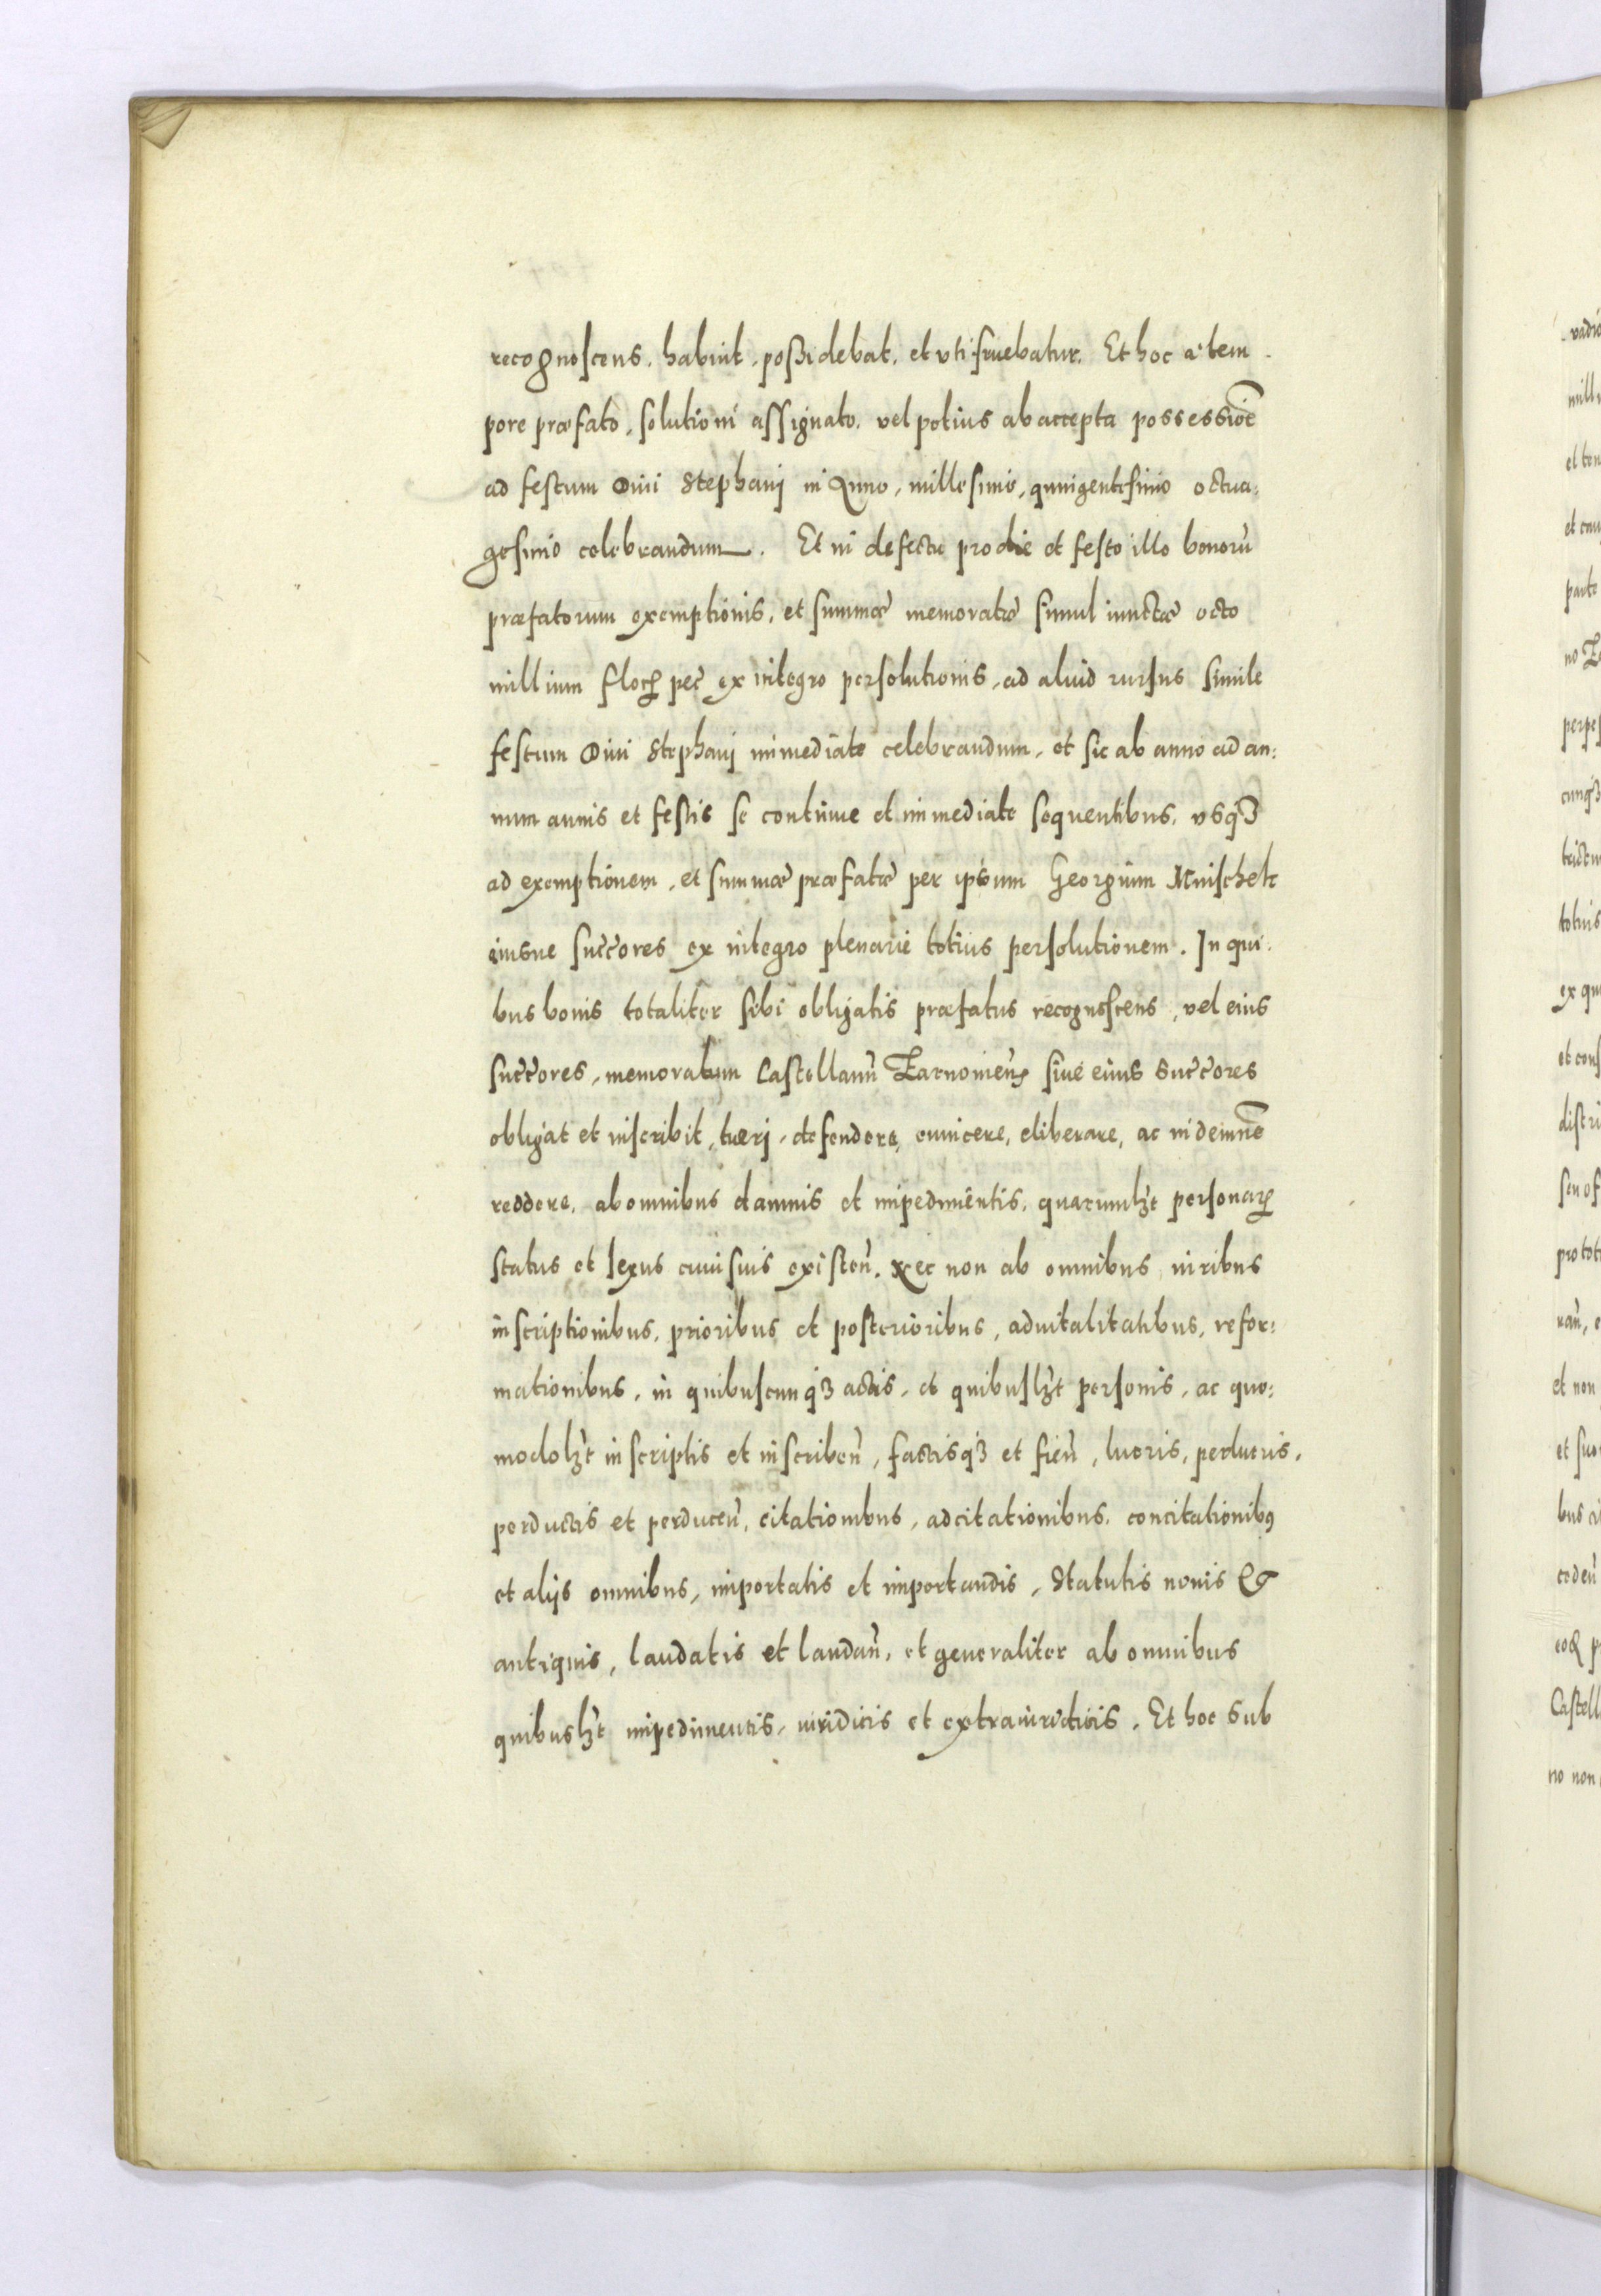 recognoscens, habuit, possidebat, et utifruebatur. Et hoc a tem-
pore præfato, solutioni assignato, vel potius ab accepta possessioē
ad festum Diui Stephanj in Anno, millesimo, quingentesimo octua-
gesimo celebrandum. Et in defectu pro die et festo illo bonorū
præfatorum exemptionis, et summæ memoratæ simul iunctæ octo
millium floꝝ pēc ex integro persolutionis, ad aliud rursus simile
festum Diui Stephanj immediate celebrandum, et sic ab anno ad an-
num annis et festis se continue et immediate sequentibus, usqꝫ
ad exemptionem, et summæ præfatæ per ipsum Georgium Mnischek
eiusue succ̄ores ex integro plenarie totius persolutionem. In qui-
bus bonis totaliter sibi obligatis præfatus recognoscens, vel eius
succ̄ores, memoratum Castellanū Zarnouieñ siue eius succ̄ores
obligat et inscribit, tuerj, defendere, euincere, eliberare, ac indemnē
reddere, ab omnibus damnis et impedimentis, quarumlꝫt personaꝝ
status et sexus cuiusuis existeñ. Nec non ab omnibus iuribus
inscriptionibus, prioribus et posterioribus, aduitalitatibus, refor-
mationibus, in quibuscunqꝫ actis, et quibuslꝫt personis, ac quo-
modolꝫt inscriptis et inscribeñ, factisqꝫ et fieñ, lucris, perlucris,
perductis et perduceñ, citationibus, adcitationibus, concitationibꝰ
et alijs omnibus, importatis et importandis, Statutis nouis &
antiquis, laudatis et laudañ, et generaliter ab omnibus
quibuslꝫt impedimentis, iuridicis et extraiuridicis. Et hoc sub